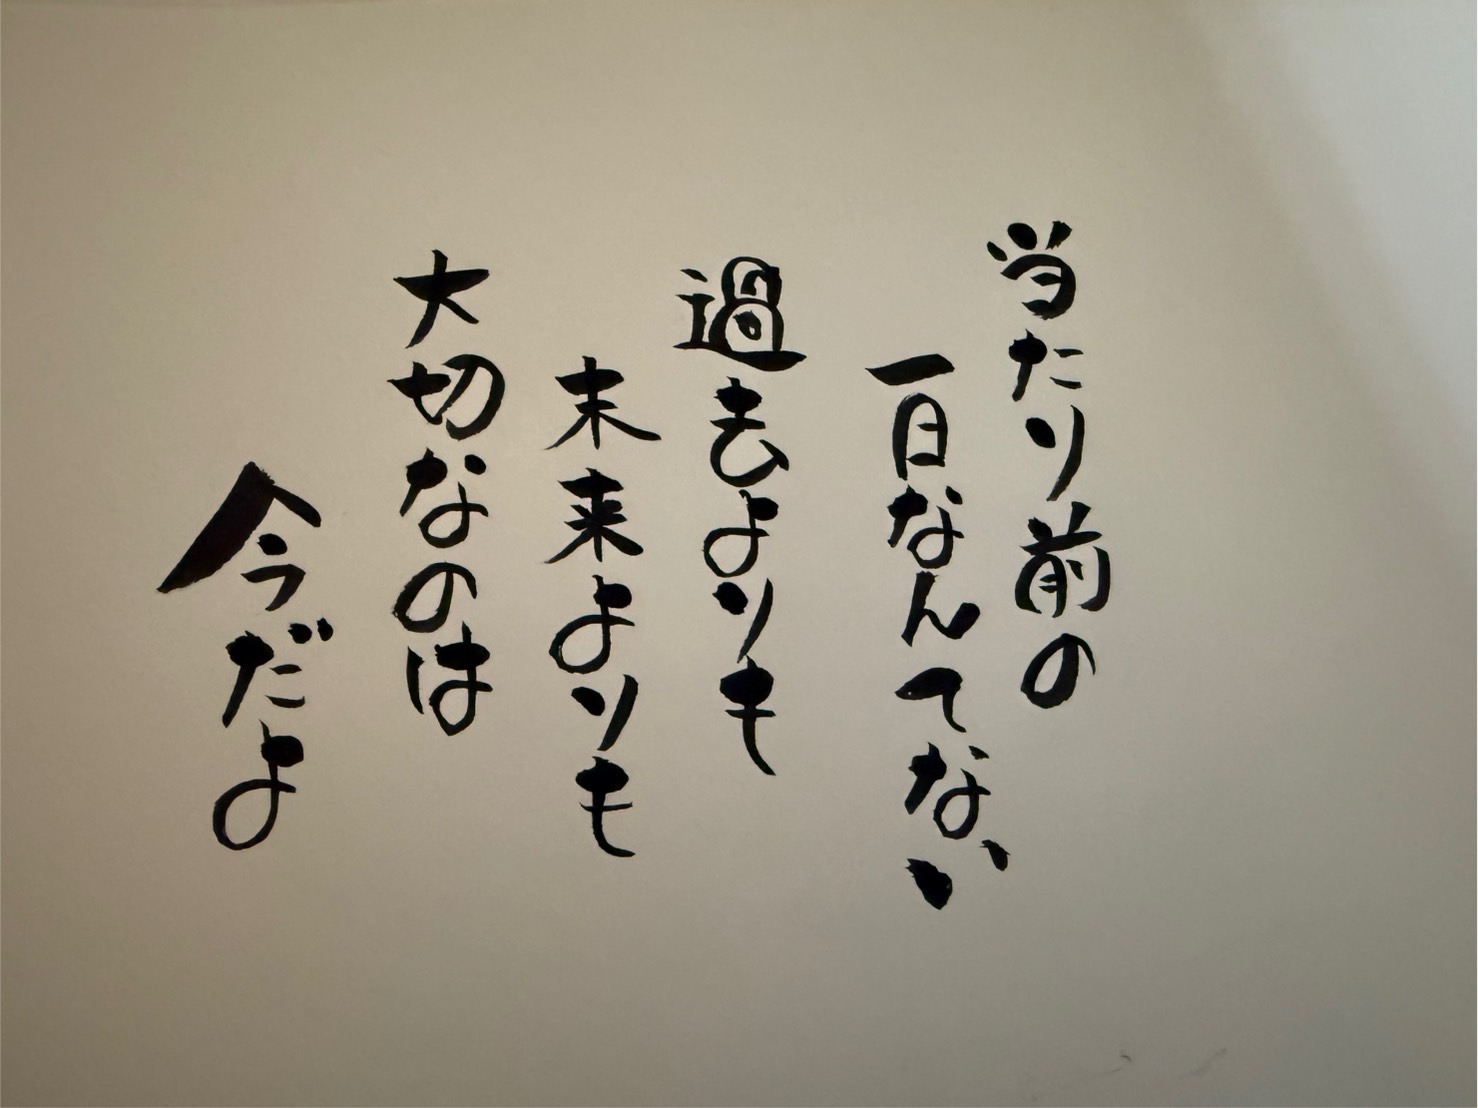 当たり前の
一日なんてない
過去よりも
未来よりも
大切なのは
今だよ